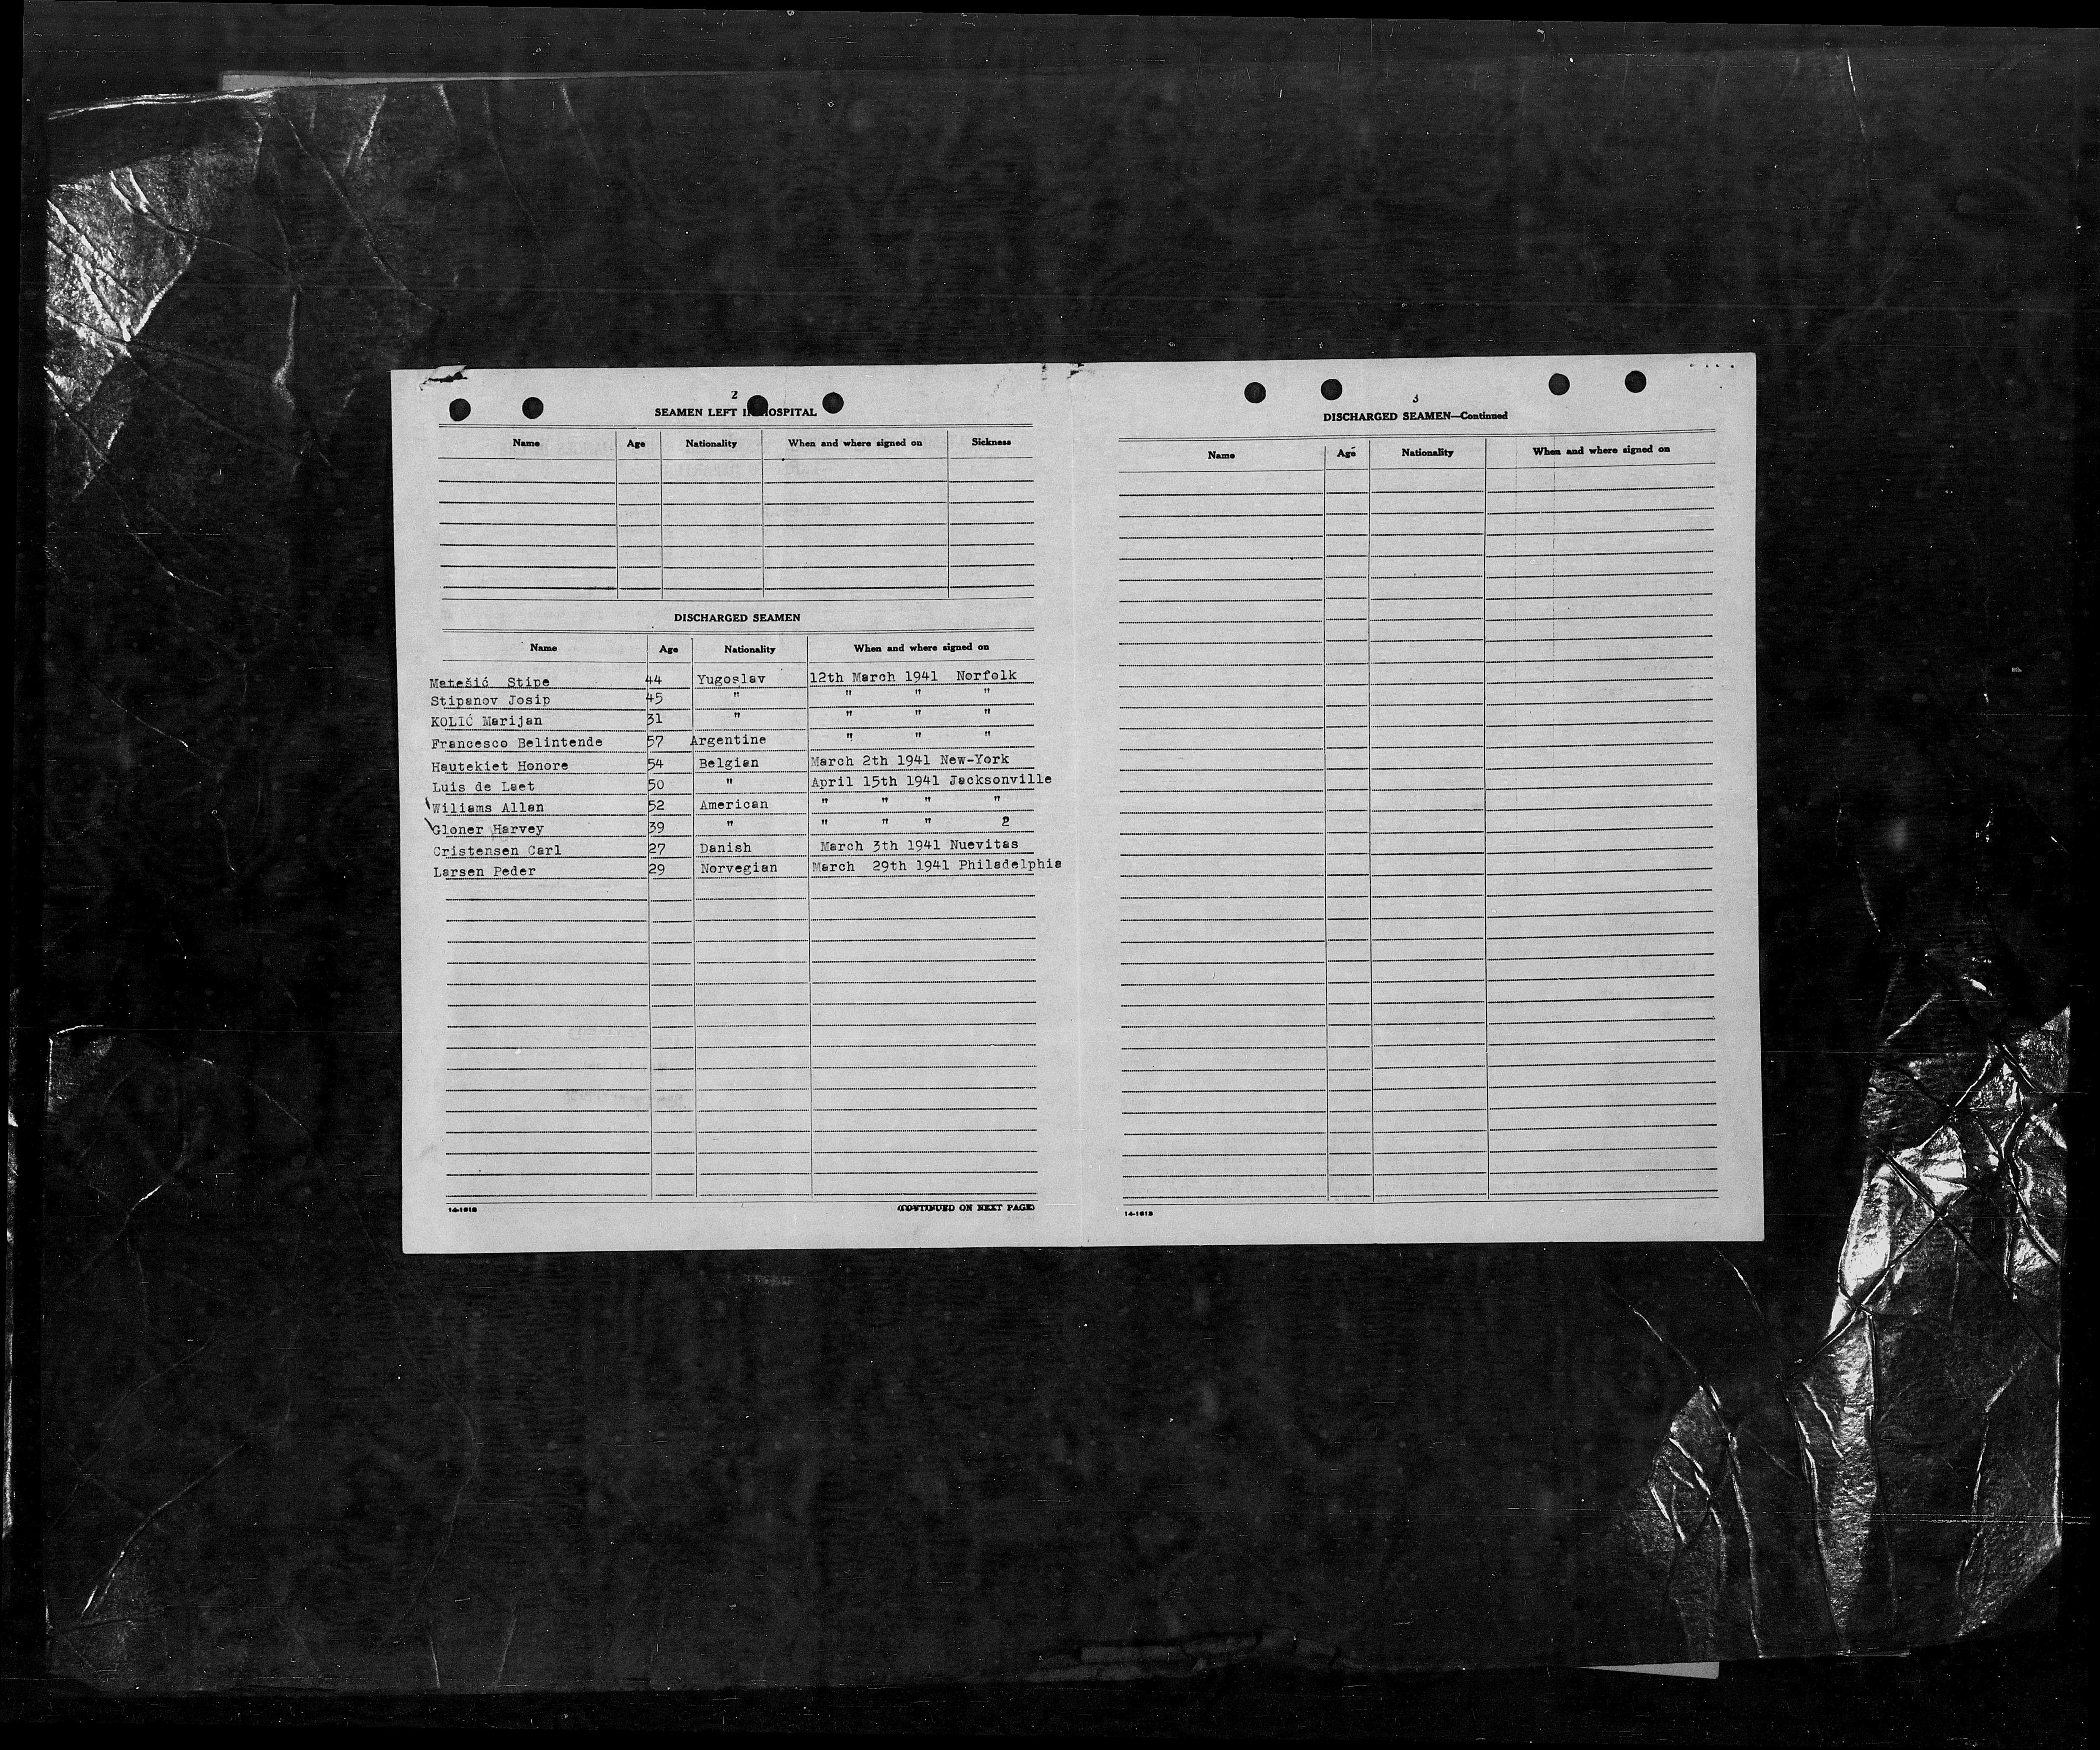 2
SEAMEN LEFT IN HOSPITAL
Name Age Nationality When and where signed on Sickness
DISCHARGED SEAMEN
Name Age Nationality When and where signed on
Matešić Stipe 44 Yugoslav 12th March 1941 Norfolk
Stipanov Josip 45 " " " "
KOLIĆ Marijan 31 " " " "
Francesco Belintende 57 Argentine " " "
Hautekiet Honore 54 Belgian March 2th 1941 New-York
Luis de Laet 50 " April 15th 1941 Jacksonville
Wiliams Allan 52 American " " " "
Gloner Harvey 39 " " " " 2
Cristensen Carl 27 Danish March 3th 1941 Nuevitas
Larsen Peder 29 Norwegian March 29th 1941 Philadelphia
14-1618 (CONTINUED ON NEXT PAGE)
3
DISCHARGED SEAMEN—Continued
Name Age Nationality When and where signed on
14-1618